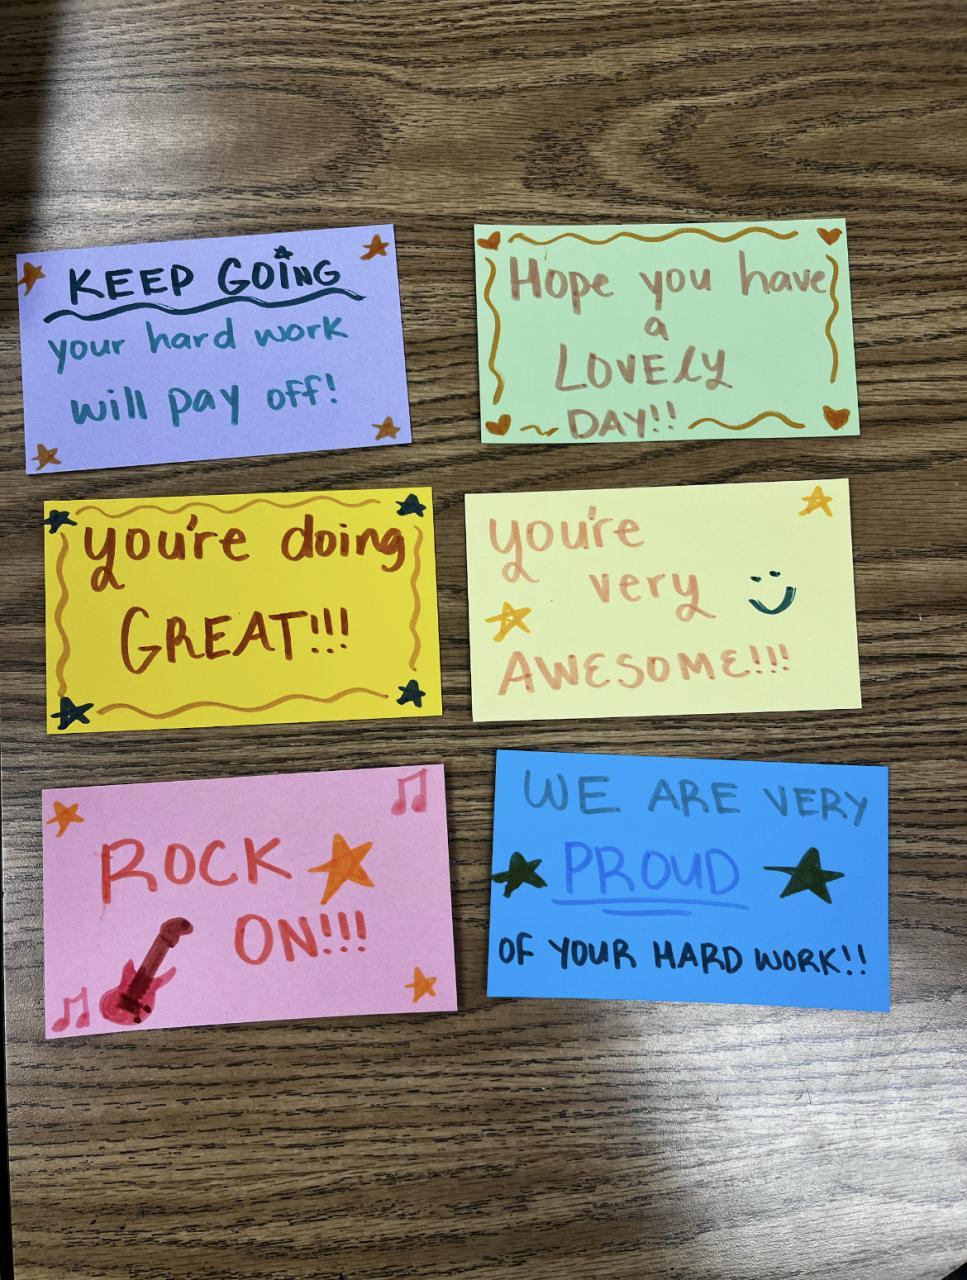 KEEP GOING
your hard work
will pay off!
Hope you have
a
LOVELY
DAY!!
you're doing
GREAT!!!
you're
very
AWESOME!!!
ROCK
ON!!!
WE ARE VERY
PROUD
OF YOUR HARD WORK!!